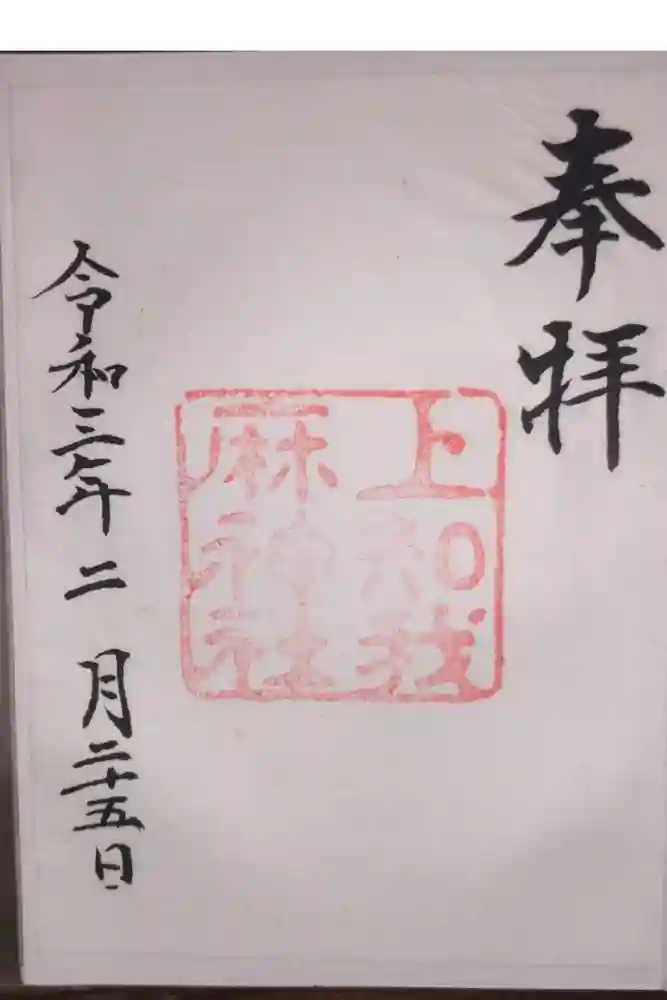 奉拝
上知我
麻神社
令和三年二月二十五日